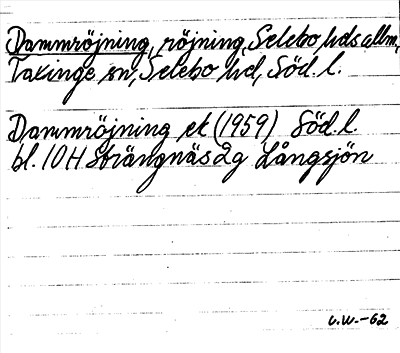 Dammröjning, röjning, Selebo hds allm.,
Taxinge sn, Selebo hd, Söd. l.
Dammröjning ek (1959) Söd. l.
bl. 10 H Strängnäs 2g Långsjön
c.w.-62